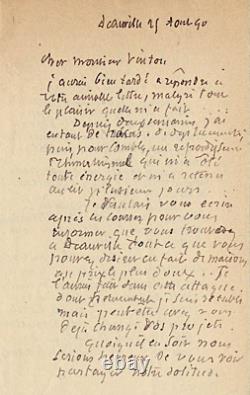 Deauville 25 Aout 90
Cher Monsieur Vinton
j'aurai bien tardé a répondre a
votre aimable lettre, malgré tout
le plaisir quelle m'a fait.
Depuis semaines, j'ai
eu tant de tracas, de déplacements
puis pour comble, un
qui m'a ôté
toute énergie et m'a retenu
au lit plusieurs jours.
Je voulais vous écrire
après les courses pour vous
informer que vous trouverez
a Deauville tout ce que vous
pouvez désirer en fait de maisons
au prix le plus doux. Je
l'aurai fait dans cette attaque
dont je suis rétabli
mais peut etre avez vous
déjà changé vos projets.
Quoiqu'il en soit nous
serions heureux de vous voir
partager notre solitude.
ebay